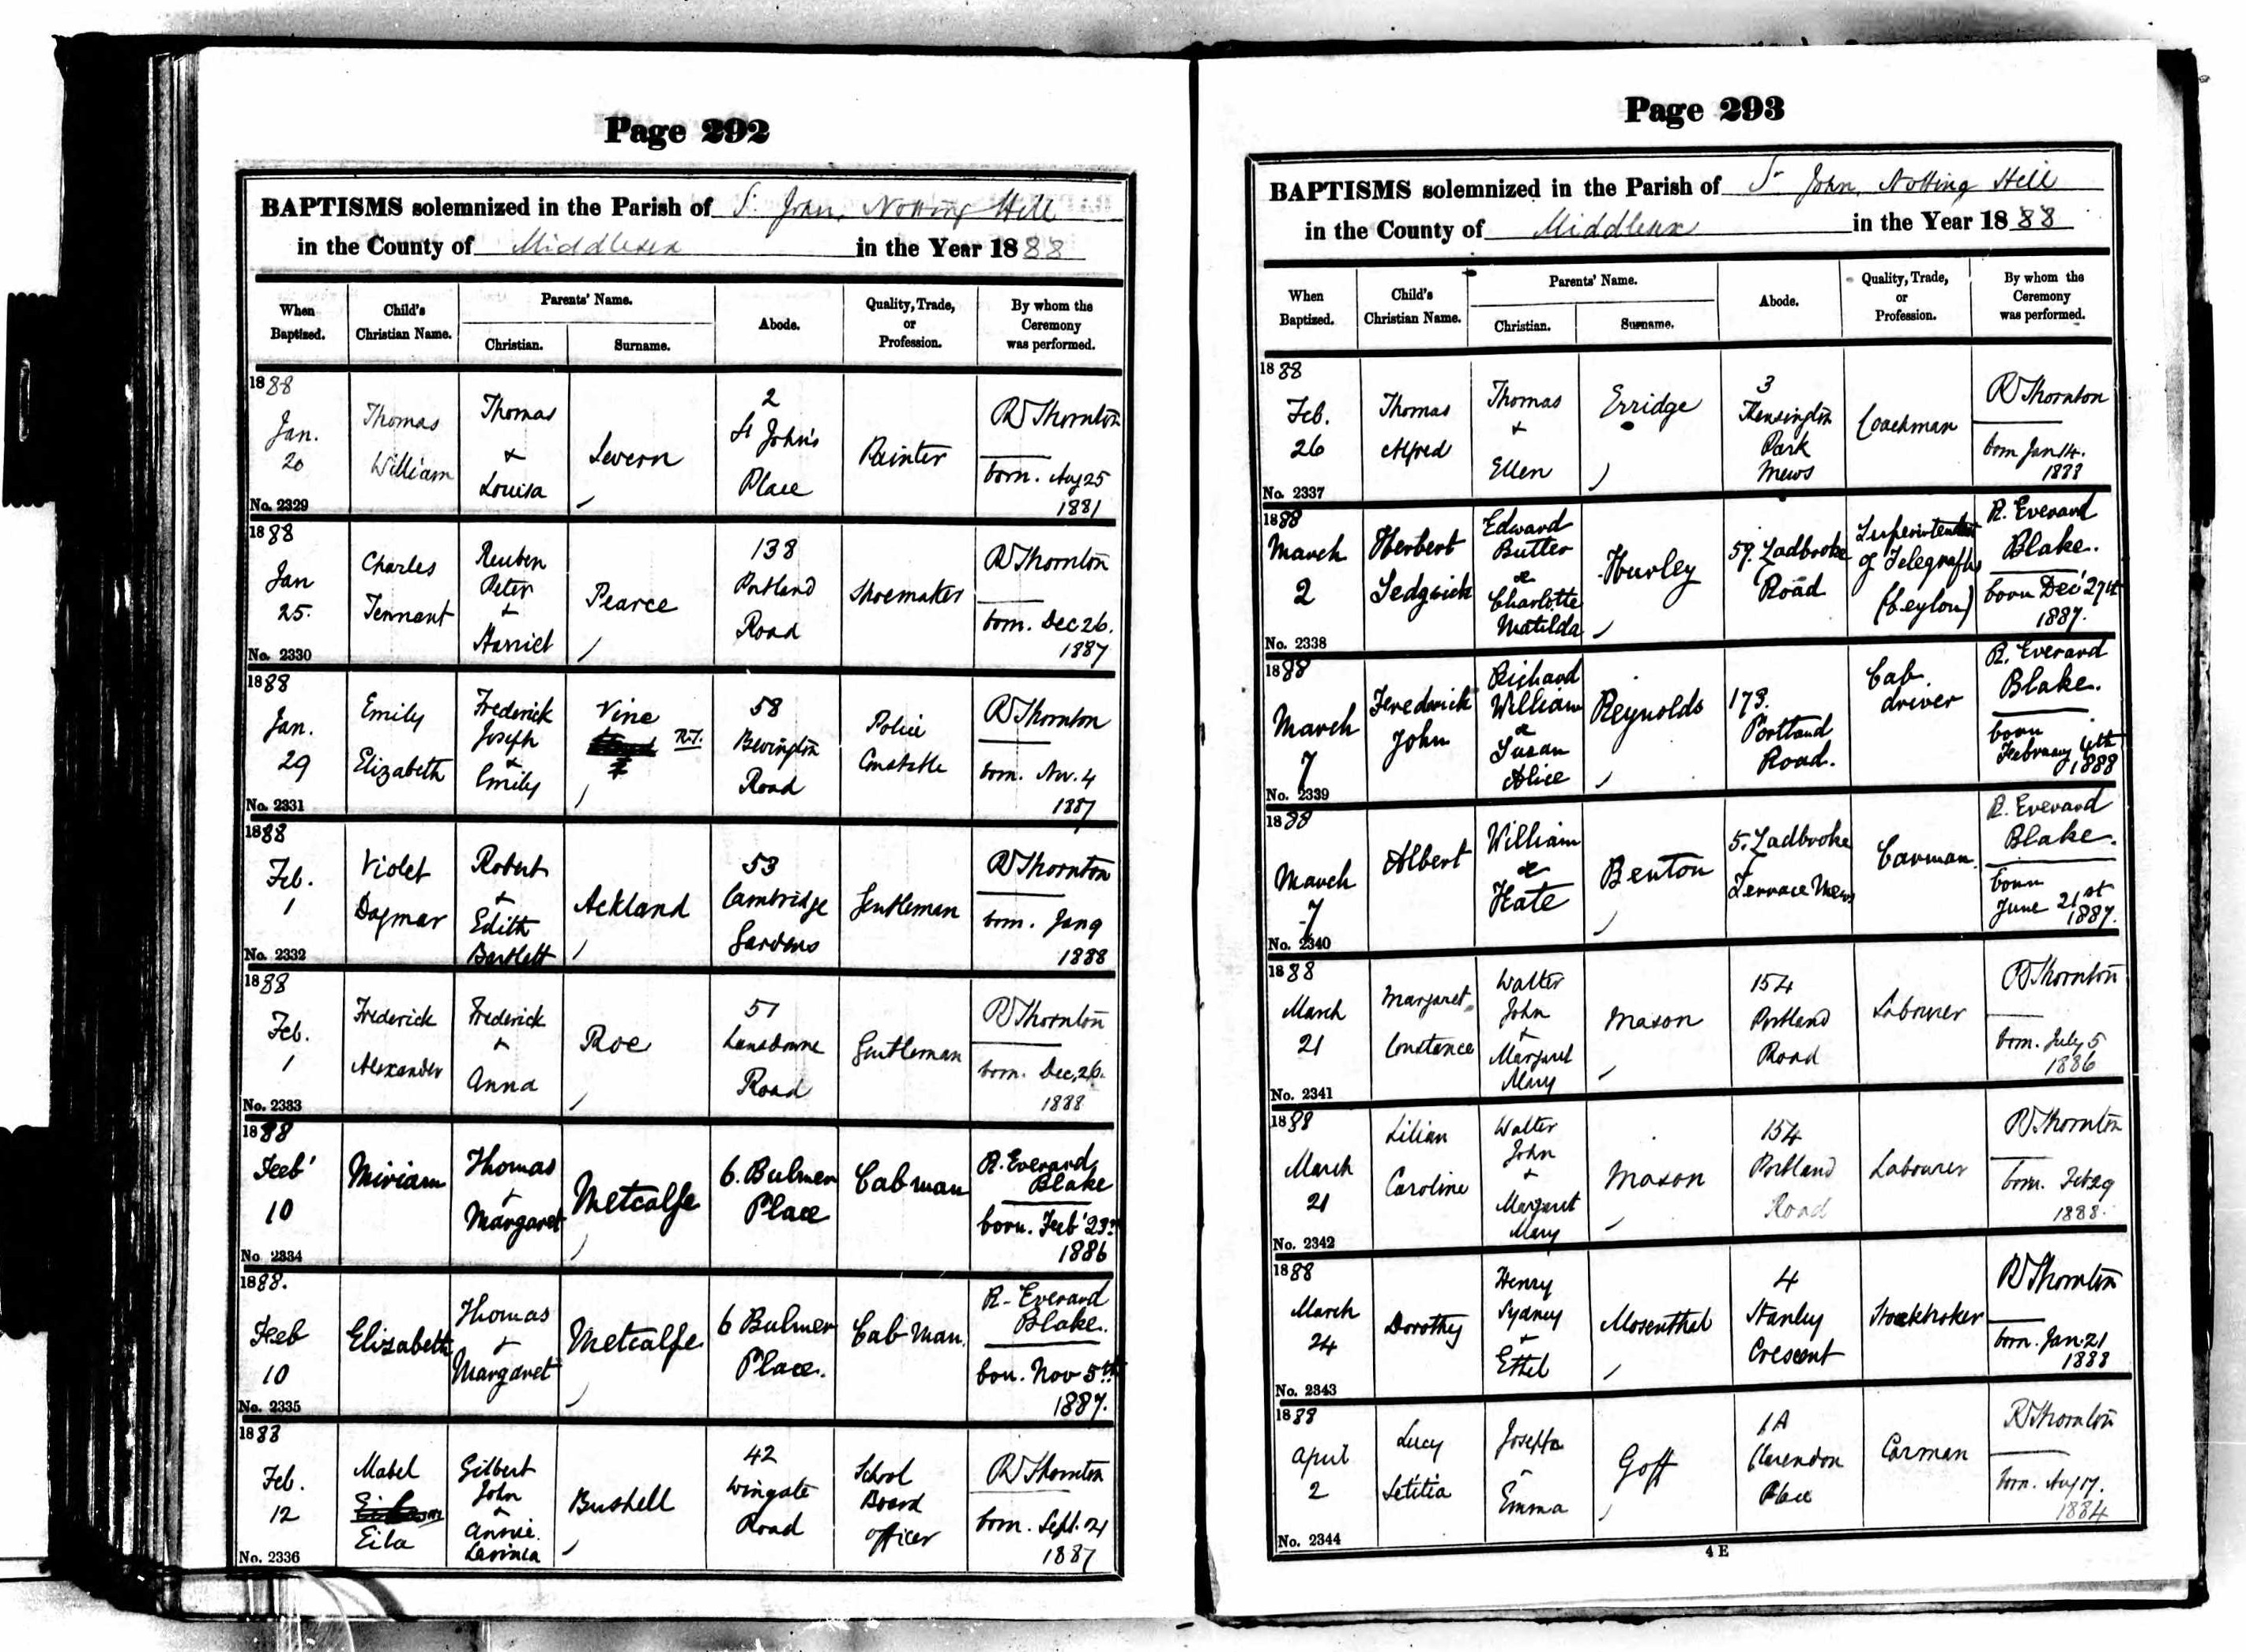 Page 292
BAPTISMS solemnized in the Parish of St John, Notting Hill
in the County of Middlesex in the Year 1888
When Baptized.
Child's Christian Name.
Parents' Name.
Christian.
Surname.
Abode.
Quality, Trade, or Profession.
By whom the Ceremony was performed.
1888
Jan.
20
No. 2329
Thomas
William
Thomas
+
Louisa
Severn
2
St John's
Place
Painter
R Thornton
born. Aug 25
1881
1888
Jan
25.
No. 2330
Charles
Tennant
Reuben
Peter
+
Harriet
Pearce
138
Portland
Road
Shoemaker
R Thornton
born. Dec 26.
1887
1888
Jan.
29
No. 2331
Emily
Elizabeth
Frederick
Joseph
+
Emily
Vine
R.T.
58
Bevington
Road
Police
Constable
R Thornton
born. Nov. 4
1887
1888
Feb.
1
No. 2332
Violet
Dagmar
Robert
+
Edith
Bartlett
Ackland
53
Cambridge
Gardens
Gentleman
R Thornton
born. Jan 9
1888
1888
Feb.
1
No. 2333
Frederick
Alexander
Frederick
+
Anna
Roe
57
Lansdowne
Road
Gentleman
R Thornton
born. Dec. 26.
1888
1888
Feb'
10
No 2334
Miriam
Thomas
+
Margaret
Metcalfe
6. Bulmer
Place
Cabman
R. Everard
Blake
born. Feb' 23rd
1886
1888.
Feb
10
No. 2335
Elizabeth
Thomas
+
Margaret
Metcalfe
6 Bulmer
Place.
Cab Man.
R. Everard
Blake.
born. Nov 5th
1887.
1888
Feb.
12
No. 2336
Mabel
Eila
Gilbert
John
+
Annie
Lavinia
Bushell
42
Wingate
Road
School
Board
Officer
R Thornton
born. Sept. 21
1887
Page 293
BAPTISMS solemnized in the Parish of St John, Notting Hill
in the County of Middlesex in the Year 1888
When Baptized.
Child's Christian Name.
Parents' Name.
Christian.
Surname.
Abode.
Quality, Trade, or Profession.
By whom the Ceremony was performed.
1888
Feb.
26
No. 2337
Thomas
Alfred
Thomas
+
Ellen
Erridge
3
Kensington
Park
Mews
Coachman
R Thornton
born Jan 14.
1888
1888
March
2
No. 2338
Herbert
Sedgwick
Edward
Butter
&
Charlotte
Matilda
Hurley
59. Ladbroke
Road
Superintendent
of Telegraphs
(Ceylon)
R. Everard
Blake.
born Dec' 27th
1887.
1888
March
7
No. 2339
Frederick
John
Richard
William
&
Susan
Alice
Reynolds
173.
Portland
Road.
Cab
driver
R. Everard
Blake.
born
February 6th
1888
1888
March
7
No. 2340
Albert
William
&
Kate
Benton
5. Ladbroke
Terrace Mews
Carman.
R. Everard
Blake.
born
June 21st
1887.
1888
March
21
No. 2341
Margaret
Constance
Walter
John
+
Margaret
Mary
Mason
154
Portland
Road
Labourer
R Thornton
born. July 5
1886
1888
March
21
No. 2342
Lilian
Caroline
Walter
John
+
Margaret
Mary
Mason
154
Portland
Road
Labourer
R Thornton
born. Feb 29
1888.
1888
March
24
No. 2343
Dorothy
Henry
Sydney
+
Ethel
Mosenthal
4
Stanley
Crescent
Stockbroker
R Thornton
born. Jan. 21
1888
1888
April
2
No. 2344
Lucy
Letitia
Joseph
Emma
Goff
1A
Clarendon
Place
Carman
R Thornton
born. Aug 17.
1884
4 E